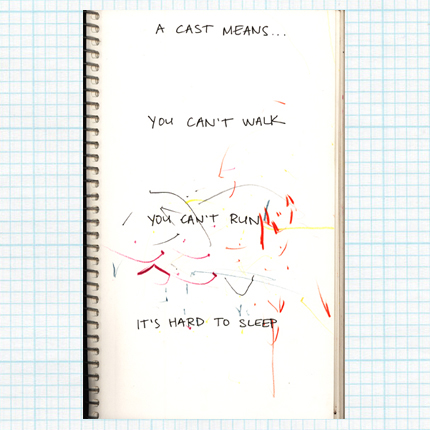 A CAST MEANS...
YOU CAN'T WALK
YOU CAN'T RUN
IT'S HARD TO SLEEP